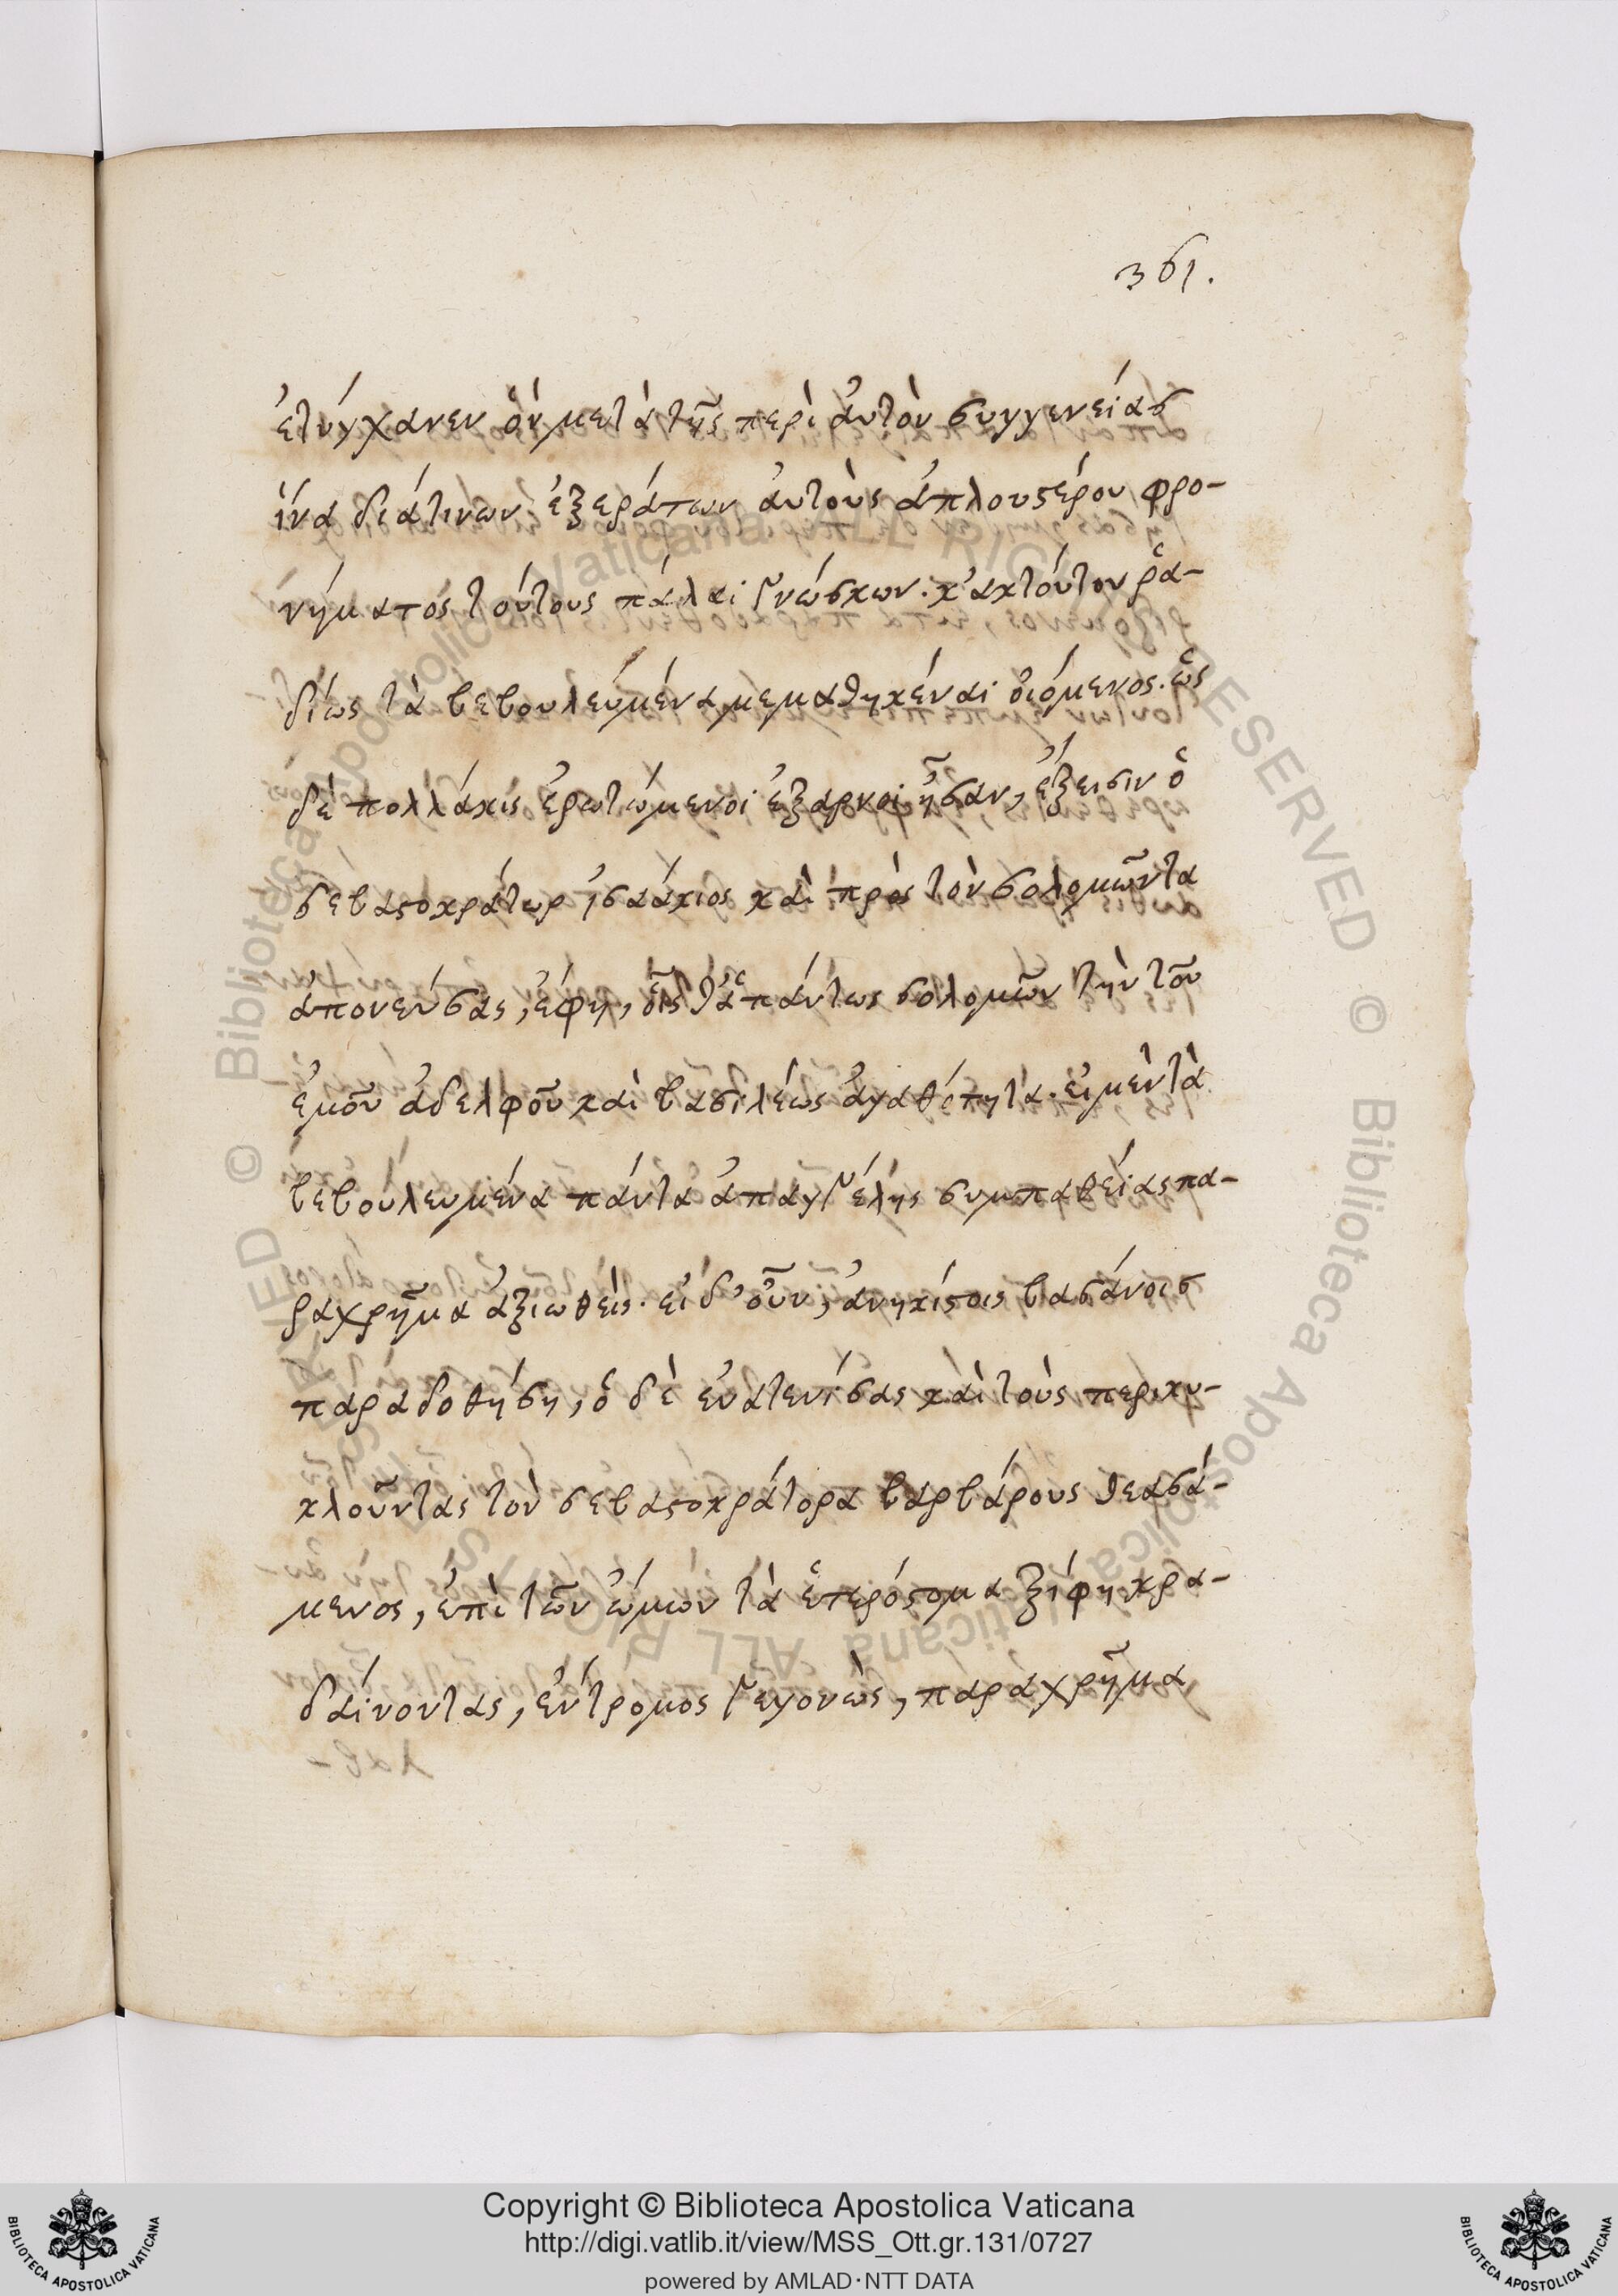 361.
ἐτύγχανεν ὂν μετὰ τῆς περὶ ἀυτὸν συγγενείασ
ἵνα διάτινων ἐξεράτων ἀυτοὺς ἁπλουστέρου φρο-
νήματος τούτους πάλαι γινώσκων. κἀκτούτου ῥᾳ-
δίως τὰ βεβουλευμένα μεμαθηκέναι ὀιόμενος. ὡς
δὲ πολλάκις ἐρωτώμενοι ἔξαρνοι ἦσαν, ἔξεισιν ὁ
σεβαστοκράτωρ ἠσαάκιος καὶ πρὸς τὸν σολομῶντα
ἀπονεύσας, ἔφη, οἶσθα πάντως σολομῶν τὴν τοῦ
ἐμοῦ ἀδελφοῦ καὶ βασιλέως ἀγαθότητα. εἰ μὲν τὰ
βεβουλευμένα πάντα ἀπαγγέλης συμπαθείας πα-
ραχρῆμα ἀξιωθεὶς. εἰ δ' οὖν, ἀνηκέστοις βασάνοισ
παραδοθήση, ὁ δὲ ἐνατενίσας καὶ τοὺς περικυ-
κλοῦντας τὸν σεβαστοκράτορα βαρβάρους θεασά-
μενος, ἐπὶ τῶν ὤμων τὰ ἑτερόστομα ξίφη κρα-
δαίνοντας, ἔντρομος γεγονὼς, παραχρῆμα
Copyright © Biblioteca Apostolica Vaticana
http://digi.vatlib.it/view/MSS_Ott.gr.131/0727
powered by AMLAD·NTT DATA
BIBLIOTECA APOSTOLICA VATICANA
BIBLIOTECA APOSTOLICA VATICANA